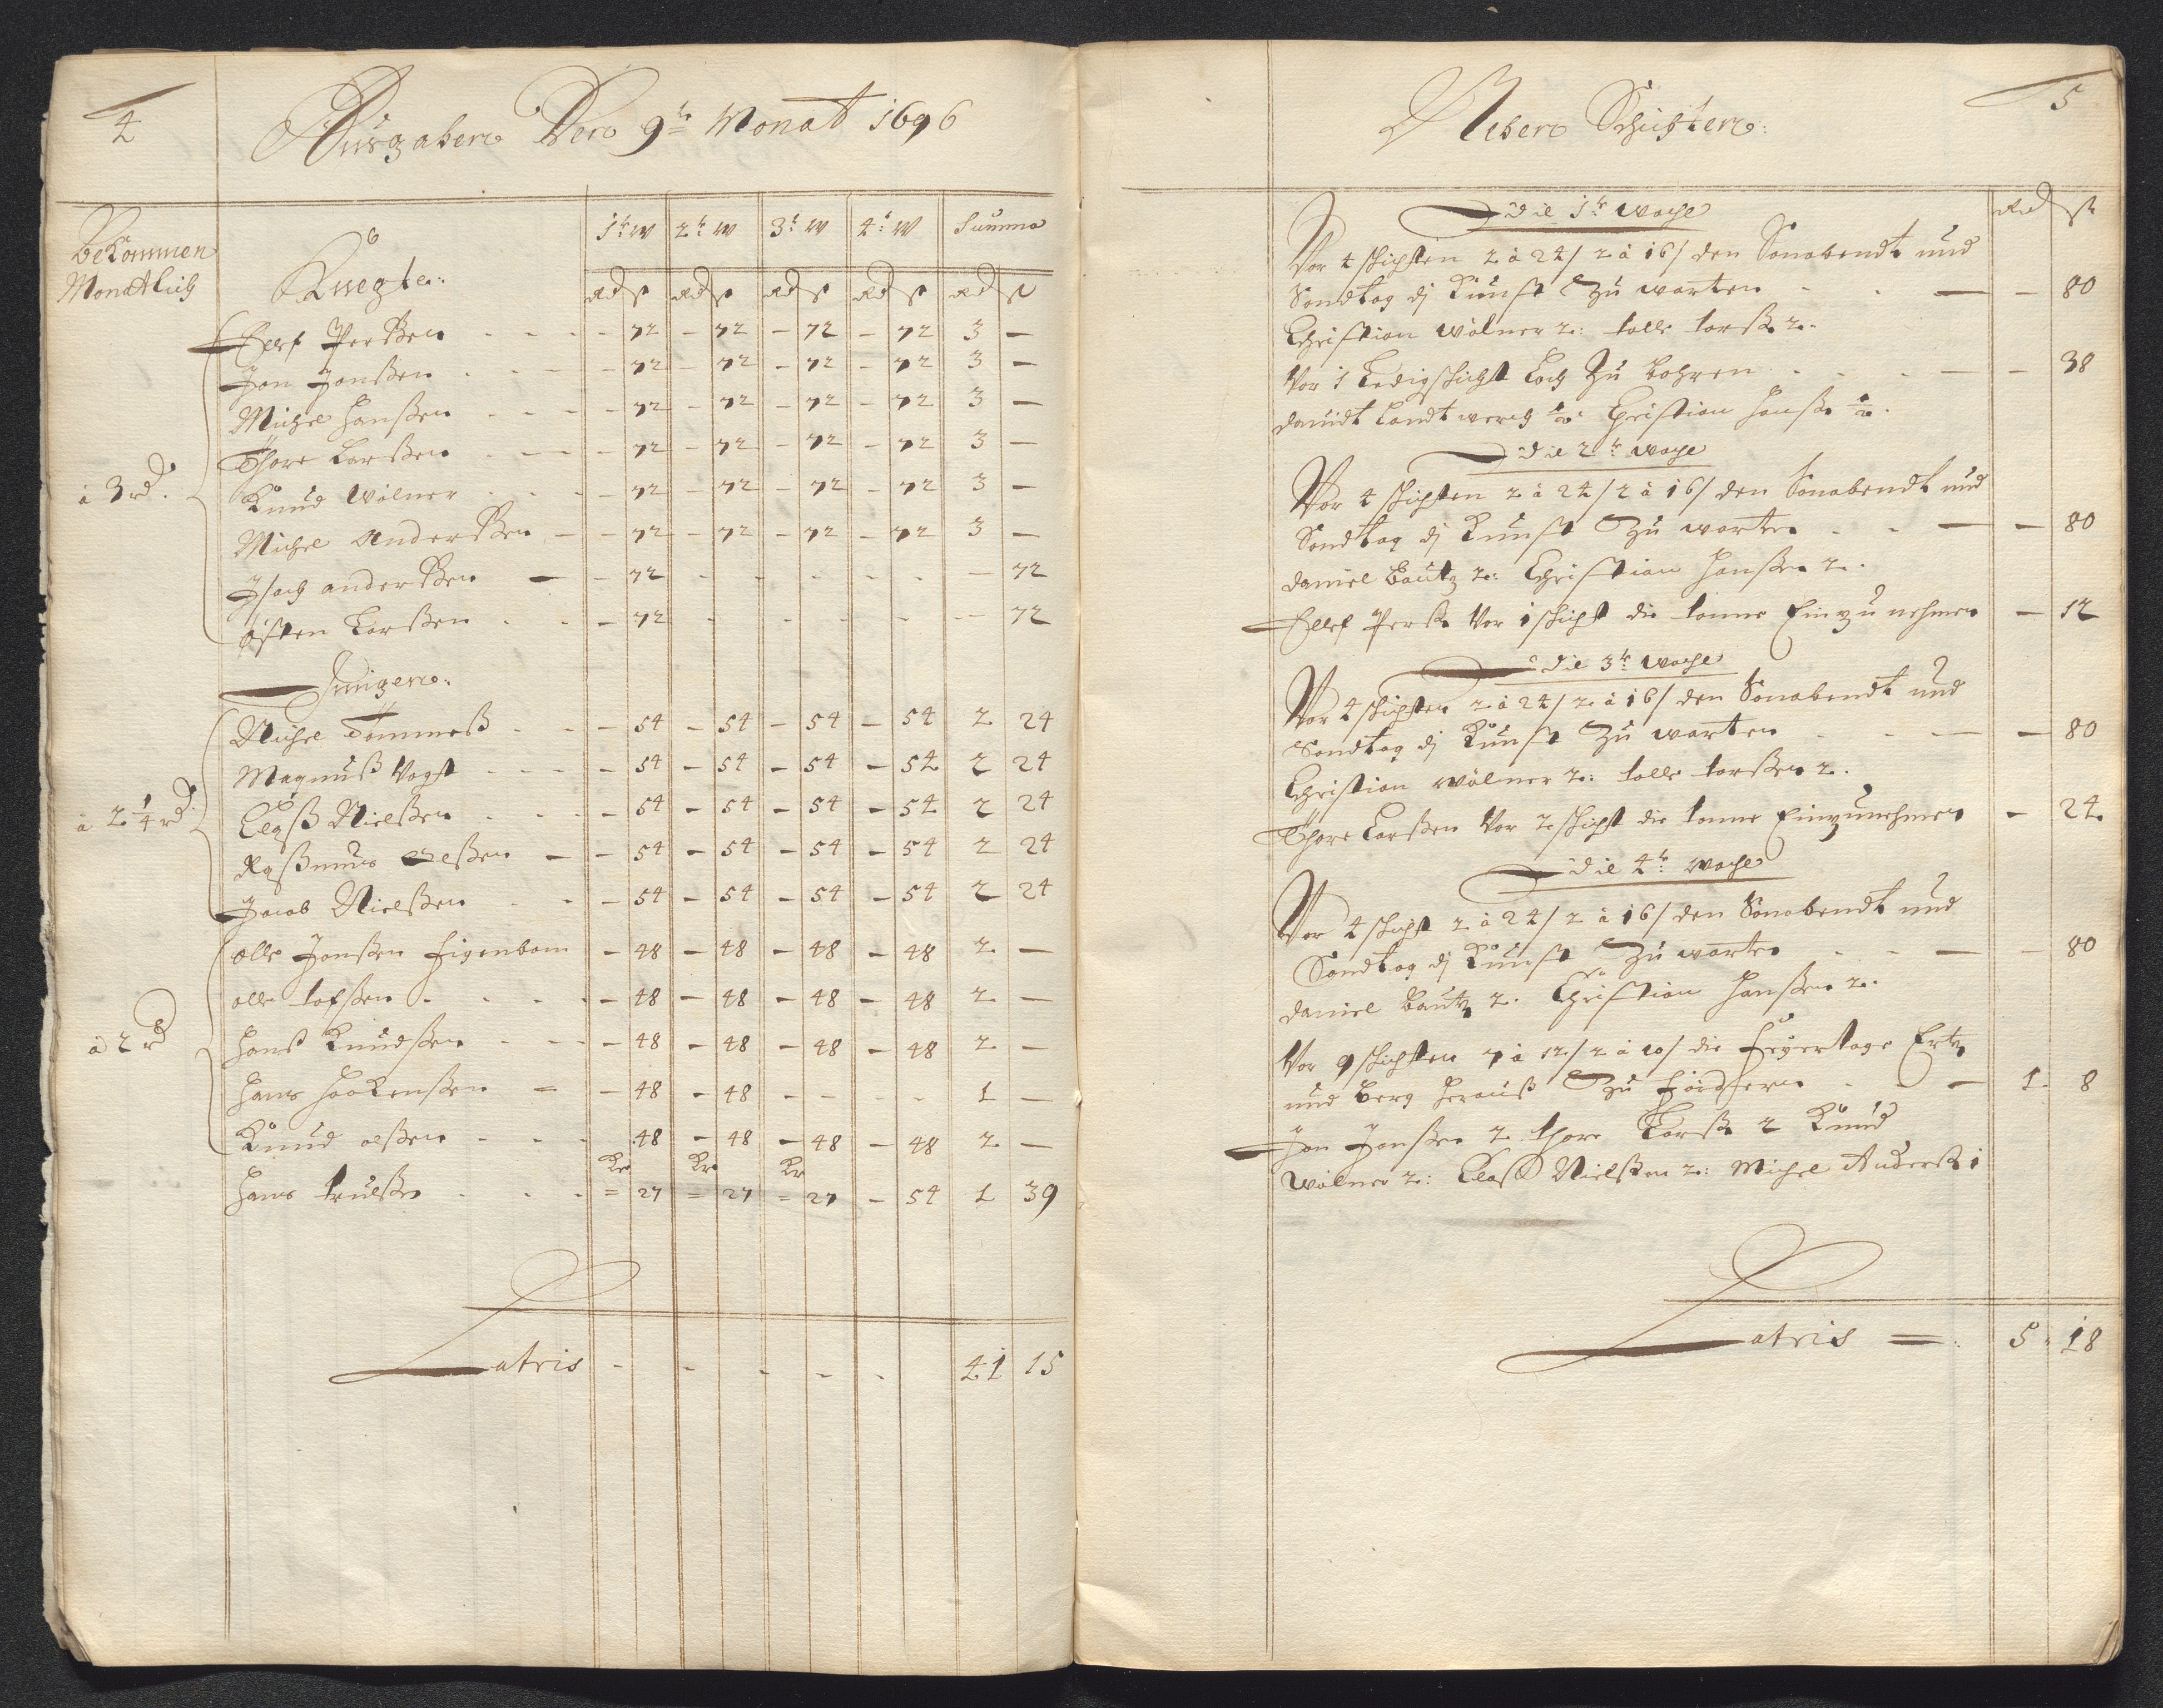 4
Ausgaben Den 9tr Monat 1696
Bekommen
Monatlich
Knechte:
1tr W 2tr W 3t W 4t W Summa
Rd ß Rd ß Rd ß Rd ß Rd ß
Ellef Perßen - - - - 72 - 72 - 72 - 72 3 -
Jon Jonßen - - - - 72 - 72 - 72 - 72 3 -
Michel Hanßen - - - - 72 - 72 - 72 - 72 3 -
Thore Larßen - - - - 72 - 72 - 72 - 72 3 -
à 3 rd.
Knud Wölner - - - - 72 - 72 - 72 - 72 3 -
Michel Anderßen - - 72 - 72 - 72 - 72 3 -
Isach anderßen - - 72 - - - - - - - 72
östen Larßen - - - 72 - - - - - - - 72
Jungen:
Michel Tommeß - - - 54 - 54 - 54 - 54 2 24
Magnuß Vogt - - - - 54 - 54 - 54 - 54 2 24
à 2 1/4 rd.
Claß Nielßen - - - - 54 - 54 - 54 - 54 2 24
Raßmus Olßen - - 54 - 54 - 54 - 54 2 24
Jacob Nielßen - - - 54 - 54 - 54 - 54 2 24
olle Jonßen Eigenbom - 48 - 48 - 48 - 48 2 -
olle tofßen - - - - 48 - 48 - 48 - 48 2 -
à 2 rd
Hanß Knudßen - - - - 48 - 48 - 48 - 48 2 -
Hans Haakenßen = - 48 - 48 - - - - 1 -
Knud olßen - - - 48 - 48 - 48 - 48 2 -
Kr Kr Kr
Hans trulßen - - - = 27 = 27 = 27 - 54 1 39
Latris - - - - - 41 15
5
Neben Schichten:
Rd ß
Die 1tr woche
Vor 4 schichten 2 à 24/ 2 à 16/ den Sonabendt und
Sondtag dj Kunst Zu warten - - - - 80
Christian Wölner 2: tolle torß 2.
Vor 1 Ledigschicht Loch Zu bohren - - - - 38
Dauidt Landtwerch 1/2 Christian Hanß 1/2.
Die 2tr woche
Vor 4 schichten 2 à 24/ 2 à 16/ den Sonabendt und
Sondtag dj Kunst Zu warten - - - - 80
Daniel Bautz 2: Christian Hanßen 2.
Ellef Perß Vor 1 schicht die tonne Einzunehmen - 12
Die 3tr woche
Vor 4 schichten 2 à 24/ 2 à 16/ den Sonabendt und
Sondtag dj Kunst Zu warten - - - - 80
Christian Wölner 2: tolle torßen 2.
Thore Larßen Vor 2 schicht die tonne Einzunehmen - 24
Die 4tr woche
Vor 4 schicht 2 à 24/ 2 à 16/ den Sonabendt und
Sondtag dj Kunst Zu warten - - - - 80
Daniel Bautz 2. Christian Hanßen 2.
Vor 9 schichten 7 à 12/ 2 à 10/ die Feyertage Ertz
und Berg herauß Zu fördern - - - 1 8
Jon Jonßen 2 thore Larß 2 Knud
Wölner 2: Claß Nielßen 2: Michel Anderß 1
Latris = 5 - 18